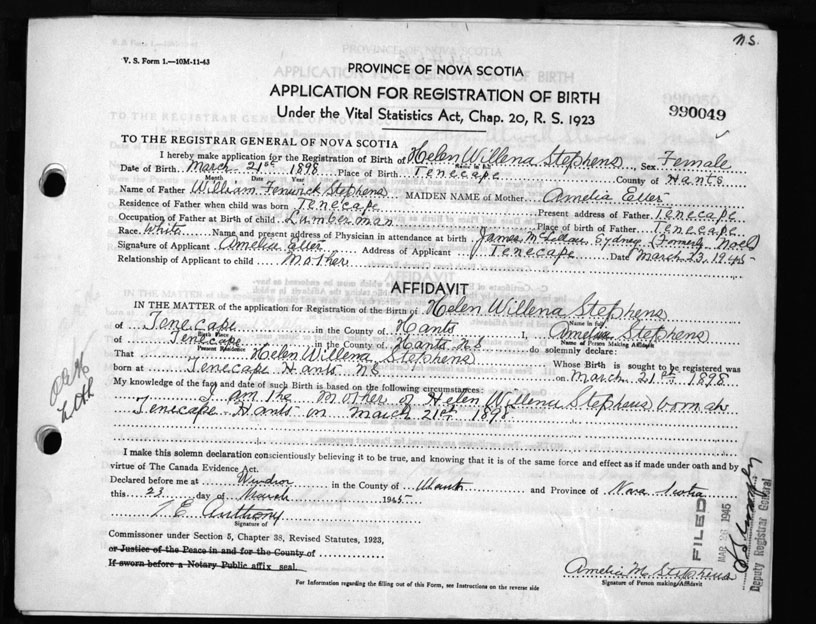 N.S.
V. S. Form 1.—10M-11-43
PROVINCE OF NOVA SCOTIA
APPLICATION FOR REGISTRATION OF BIRTH
Under the Vital Statistics Act, Chap. 20, R. S. 1923
990049
TO THE REGISTRAR GENERAL OF NOVA SCOTIA
I hereby make application for the Registration of Birth of Helen Willena Stephens, Sex Female
Name in full
Date of Birth March 21st 1898 Place of Birth Tenecape County of Hants
Month Date Year
Name of Father William Fenwick Stephens MAIDEN NAME of Mother Amelia Etter
Residence of Father when child was born Tenecape Present address of Father Tenecape
Occupation of Father at Birth of child Lumberman Place of Birth of Father Tenecape
Race White Name and present address of Physician in attendance at birth James Sydney (Formerly Noel)
Signature of Applicant Amelia Etter Address of Applicant Tenecape Date March 23, 1945
Relationship of Applicant to child Mother
AFFIDAVIT
IN THE MATTER of the application for Registration of the Birth of Helen Willena Stephens
Name in full
of Tenecape in the County of Hants I, Amelia Stephens
Birth Place Name of Person Making Affidavit
of Tenecape in the County of Hants N.S. do solemnly declare:
Present Residence
That Helen Willena Stephens Whose Birth is sought to be registered was
born at Tenecape Hants N.S. on March 21st, 1898
My knowledge of the fact and date of such Birth is based on the following circumstances:
I am the Mother of Helen Willena Stephens born at
Tenecape Hants on March 21st 1898
I make this solemn declaration conscientiously believing it to be true, and knowing that it is of the same force and effect as if made under oath and by
virtue of The Canada Evidence Act.
Declared before me at Windsor in the County of Hants and Province of Nova Scotia
this 23 day of March 1945
Anthony
Signature of
Commissioner under Section 5, Chapter 38, Revised Statutes, 1923,
or Justice of the Peace in and for the County of
If sworn before a Notary Public affix seal.
Amelia M. Stephens
Signature of Person making Affidavit
For Information regarding the filling out of this Form, see Instructions on the reverse side
FILED
1945
Deputy Registrar General